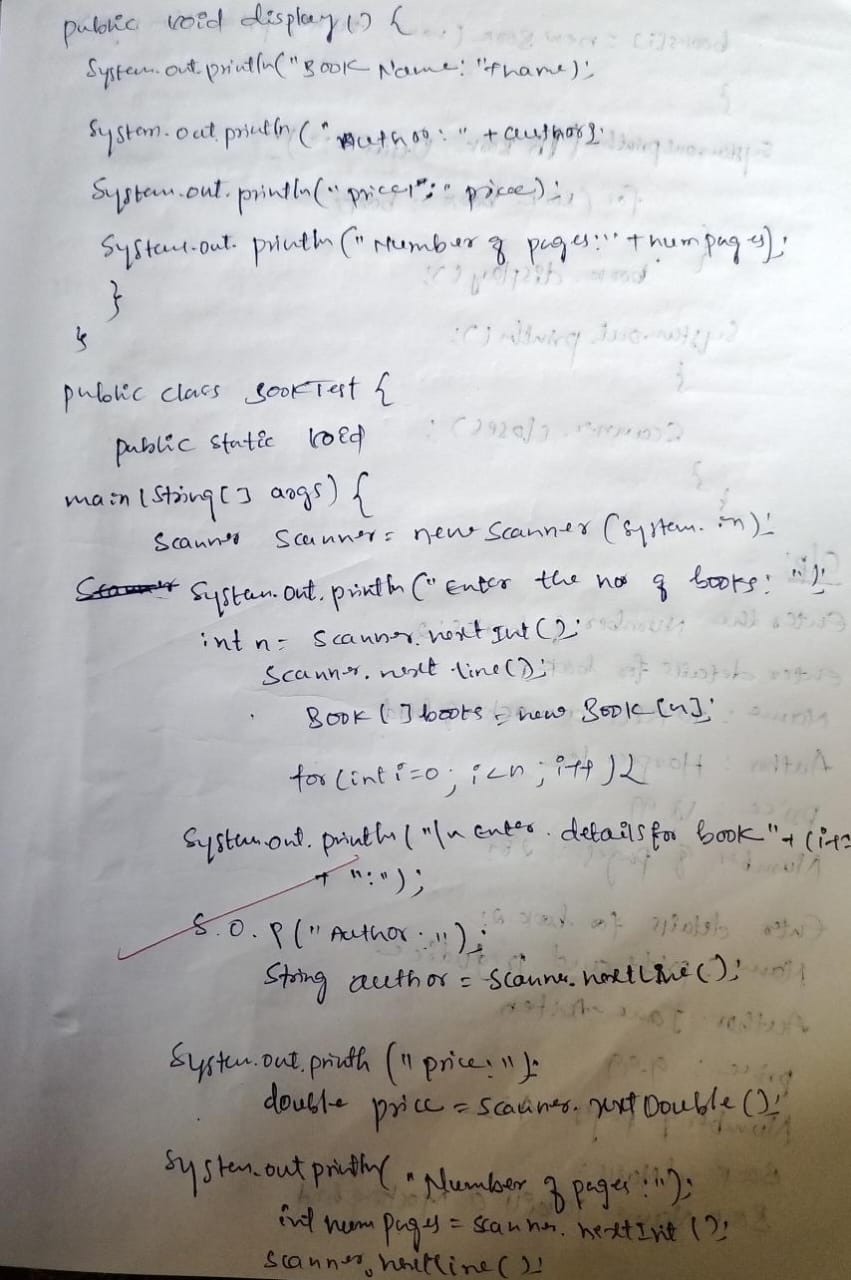 public void display() {
System.out.println("Book Name: "+name);
System.out.println("Author: " + author);
System.out.println("price: " price);
System.out.println("Number of pages:" + numpages);
}
}
public class BookTest {
public static void
main (String[] args) {
Scanner Scanner = new Scanner (System.in);
System.out.println(" Enter the no of books: ");
int n = Scanner.nextInt();
Scanner.next line();
Book [] books = new Book [n];
for (int i=0; i<n; i++) {
System.out.println("\n enter details for book"+ (i+
+ ":");
S.O.P("Author:");
String author = Scanner.nextLine();
System.out.println ("price:");
double price = scanner.nextDouble();
System.out.println("Number of pages:");
int numpages = scanner.nextInt();
scanner.nextline();